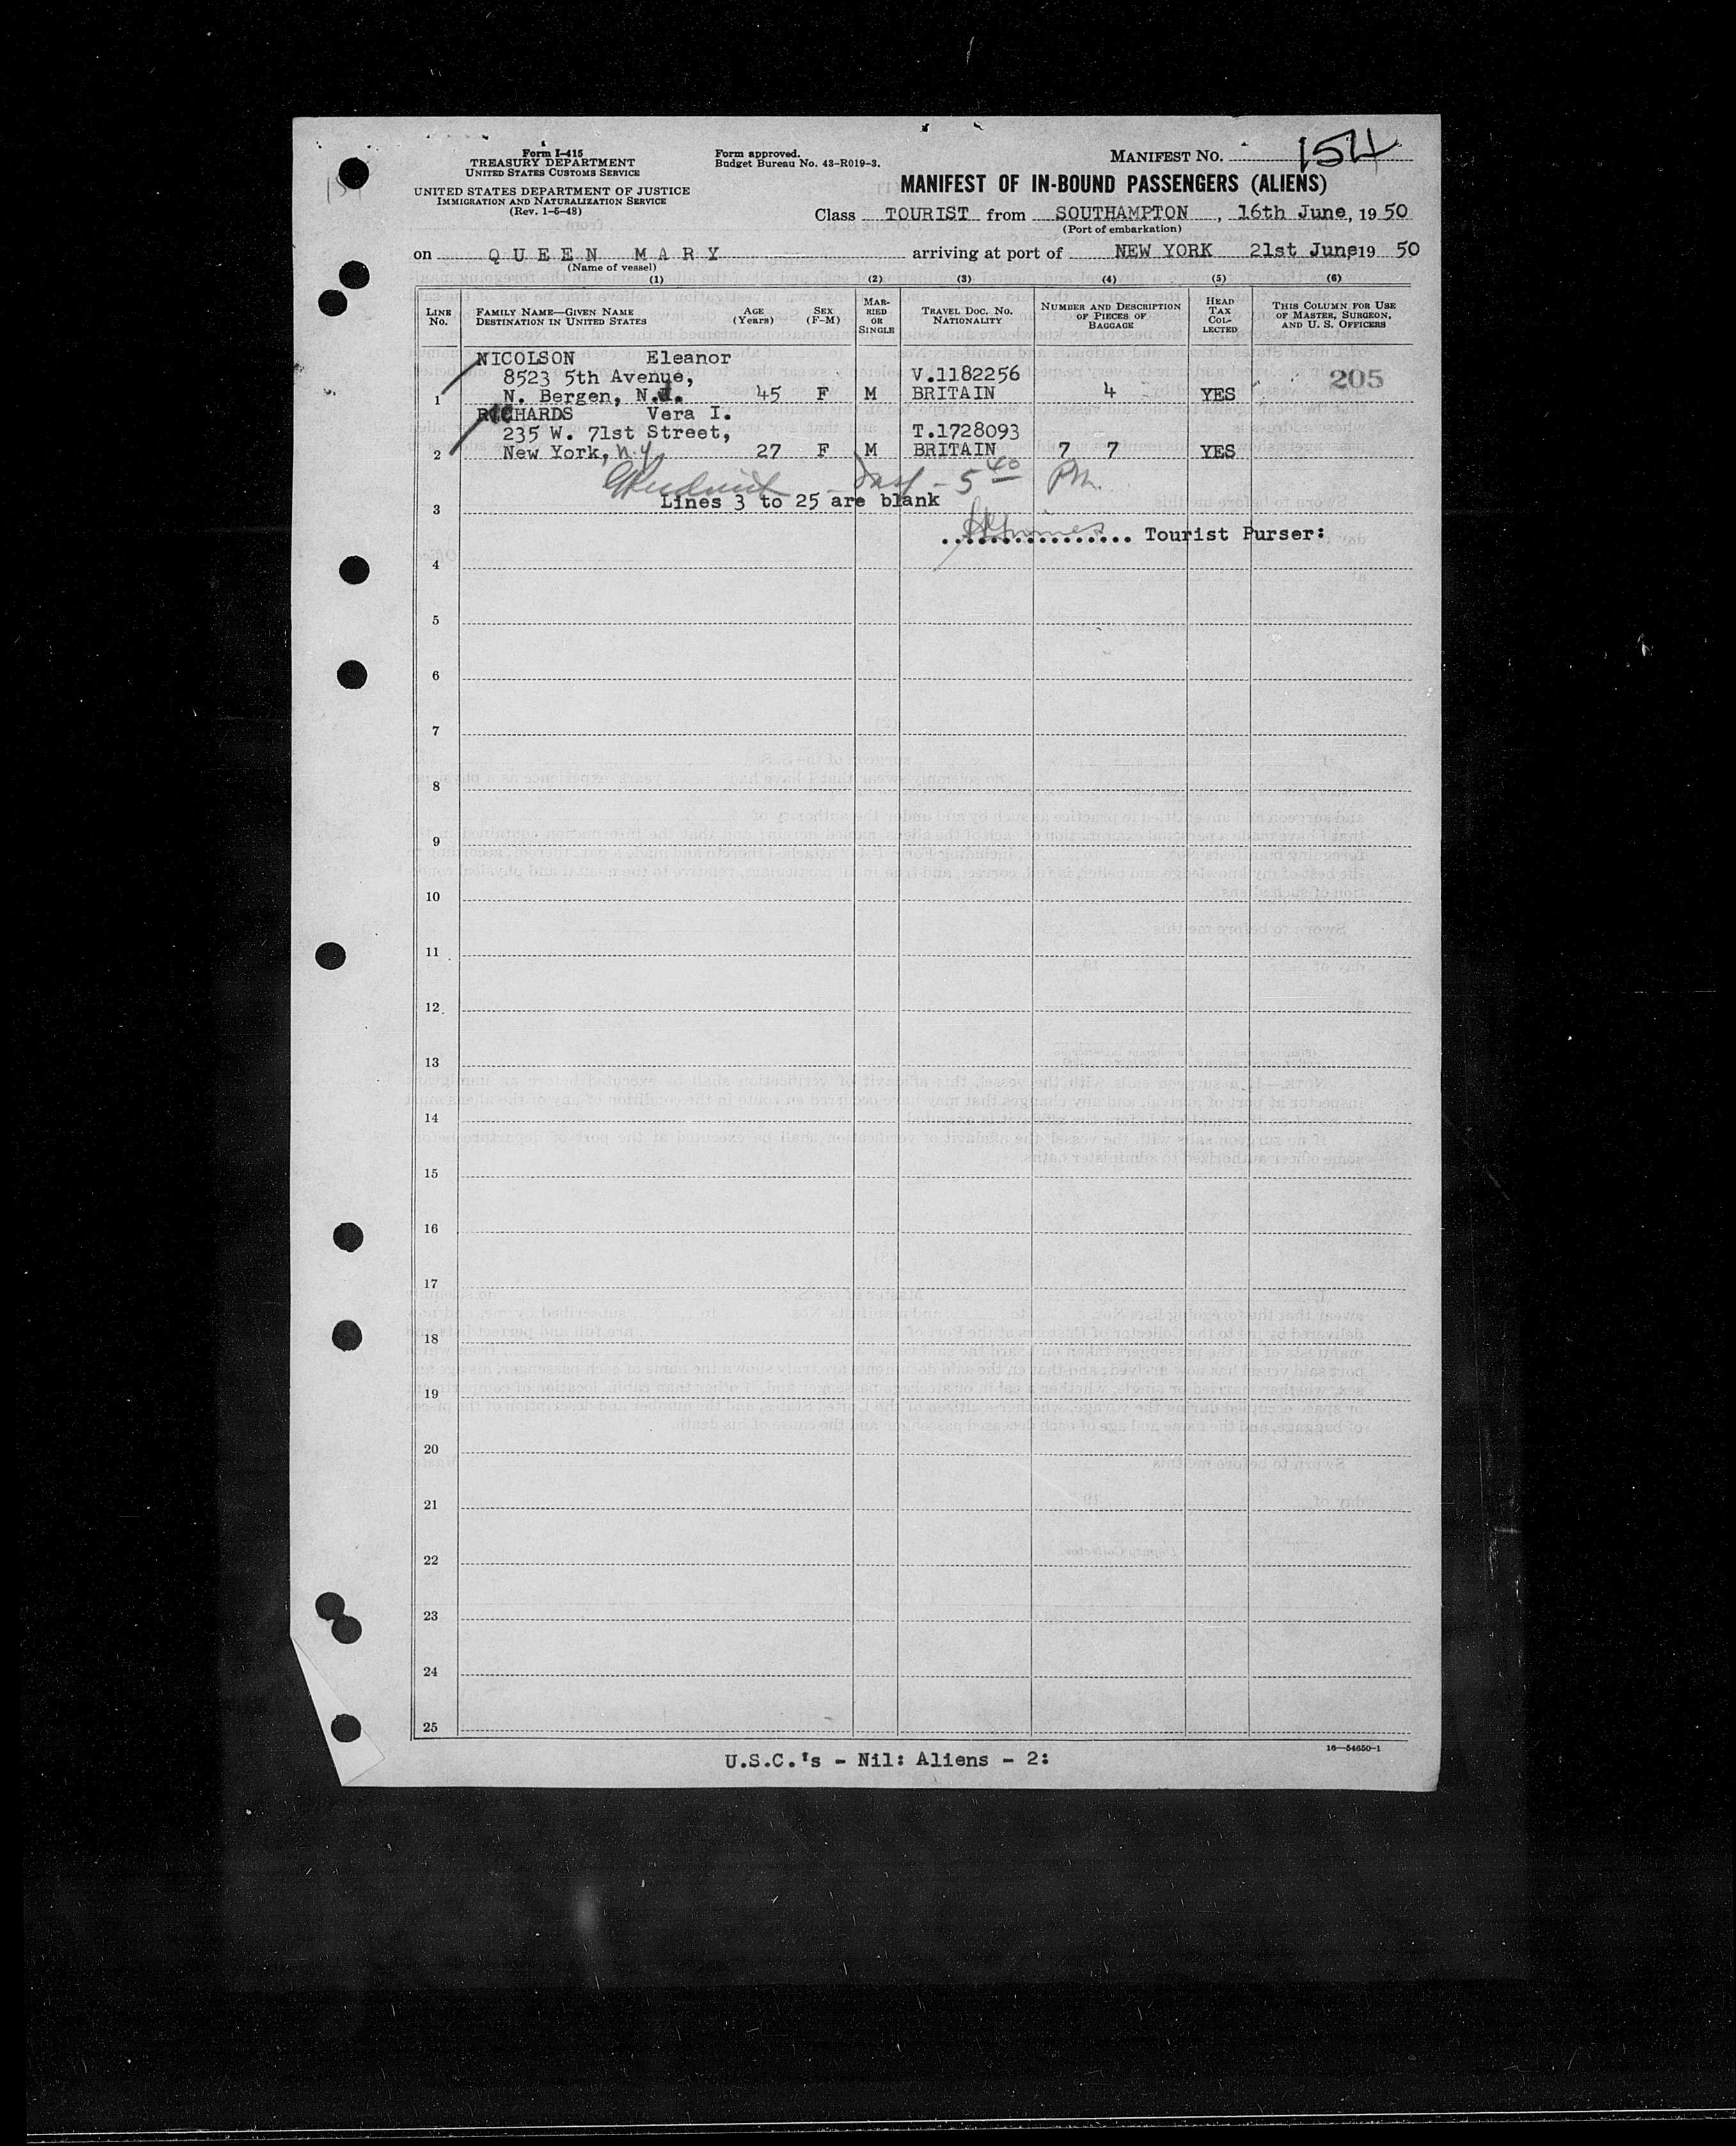 Form I-415
TREASURY DEPARTMENT
UNITED STATES CUSTOMS SERVICE
UNITED STATES DEPARTMENT OF JUSTICE
IMMIGRATION AND NATURALIZATION SERVICE
(Rev. 1-5-48)
Form approved.
Budget Bureau No. 43-R019-3.
MANIFEST NO. 154
MANIFEST OF IN-BOUND PASSENGERS (ALIENS)
Class TOURIST from SOUTHAMPTON, 16th June, 1950
(Port of embarkation)
on QUEEN MARY arriving at port of NEW YORK 21st June, 1950
(Name of vessel)
(1) (2) (3) (4) (5) (6)
LINE NO.
FAMILY NAME—GIVEN NAME
DESTINATION IN UNITED STATES
AGE (Years)
SEX (F-M)
MARRIED OR SINGLE
TRAVEL DOC. NO. NATIONALITY
NUMBER AND DESCRIPTION OF PIECES OF BAGGAGE
HEAD TAX COLLECTED
THIS COLUMN FOR USE OF MASTER, SURGEON, AND U. S. OFFICERS
NICOLSON Eleanor
8523 5th Avenue, V.1182256 205
1 N. Bergen, N.J. 45 F M BRITAIN 4 YES
RICHARDS Vera I.
235 W. 71st Street, T.1728093
2 New York, N.Y. 27 F M BRITAIN 7 7 YES
5 40 PM.
Lines 3 to 25 are blank
3
Tourist Purser:
4
5
6
7
8
9
10
11
12
13
14
15
16
17
18
19
20
21
22
23
24
25
16—54650-1
U.S.C.'s - Nil: Aliens - 2: